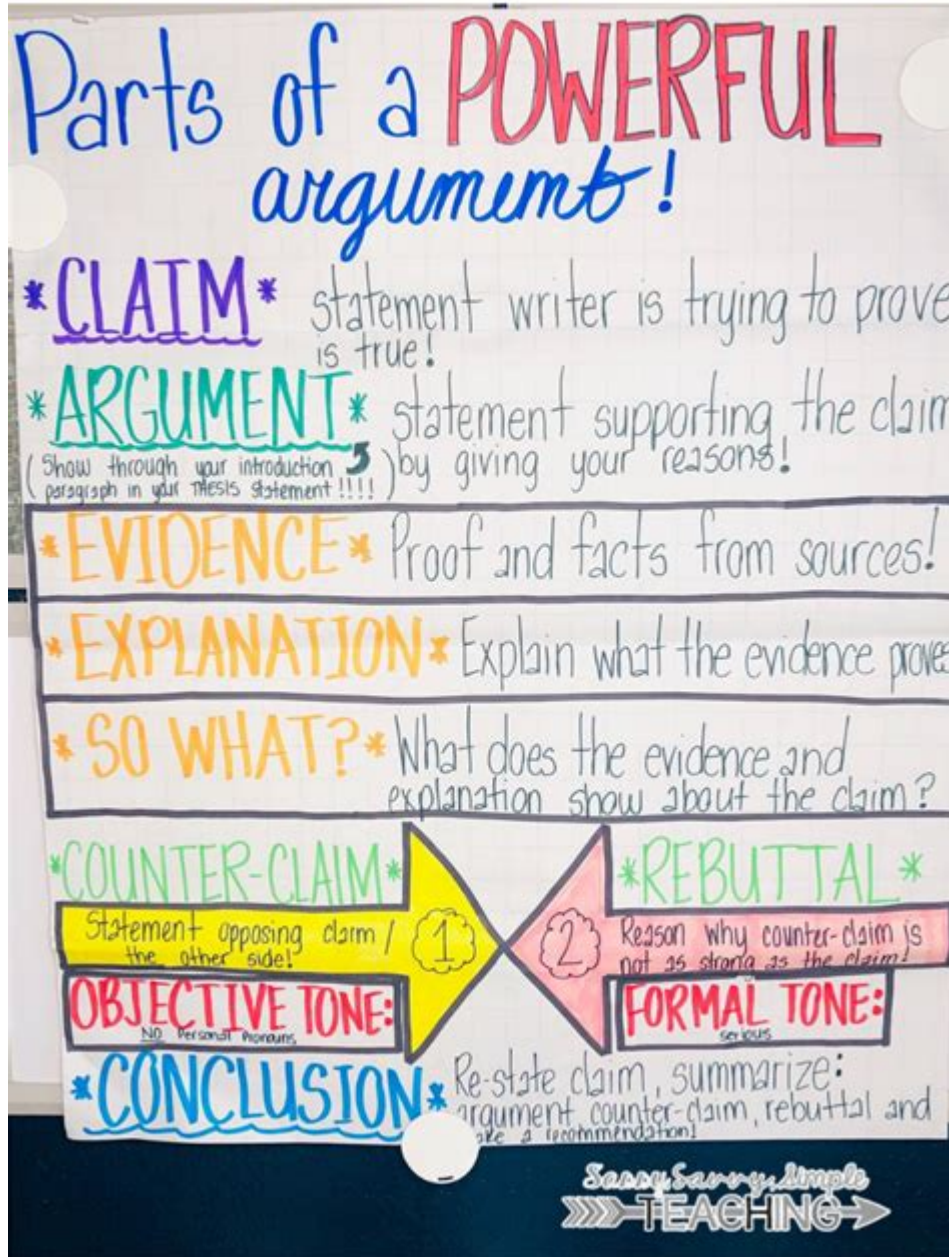 Parts of a POWERFUL
argument!
*CLAIM* statement writer is trying to prove
is true!
*ARGUMENT* statement supporting the claim
by giving your reasons!
(Show through your introduction
paragraph in your THESIS statement!!!!)
*EVIDENCE* Proof and facts from sources!
*EXPLANATION* Explain what the evidence proves
*SO WHAT?* What does the evidence and
explanation show about the claim?
*COUNTER-CLAIM*
Statement opposing claim /
the other side!
1
*REBUTTAL*
2
Reason why counter-claim is
not as strong as the claim!
OBJECTIVE TONE:
NO Personal Pronouns
FORMAL TONE:
serious
*CONCLUSION* Re-state claim, summarize:
argument, counter-claim, rebuttal and
a recommendation!
Sassy, Savvy, Simple
TEACHING